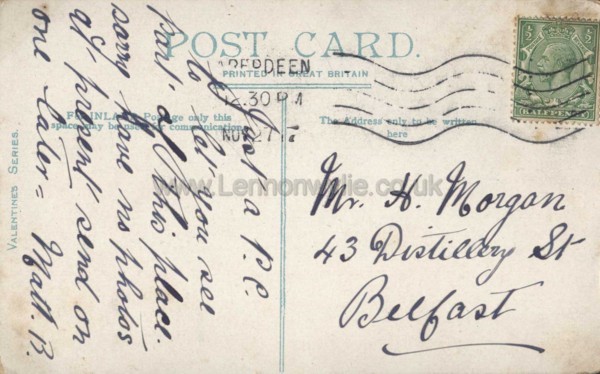 POST CARD.
PRINTED IN GREAT BRITAIN
ABERDEEN
12.30 PM
NOV 27 17
FOR INLAND Postage only this
space may be used for communication.
The Address only to be written
here
VALENTINES SERIES.
Just a P.C.
to let you see
part of this place.
sorry have no photos
at present send on
one later = Matt. B.
Mr. H. Morgan
43 Distillery St
Belfast
½
½
HALFPENNY
www.Lennonwylie.co.uk